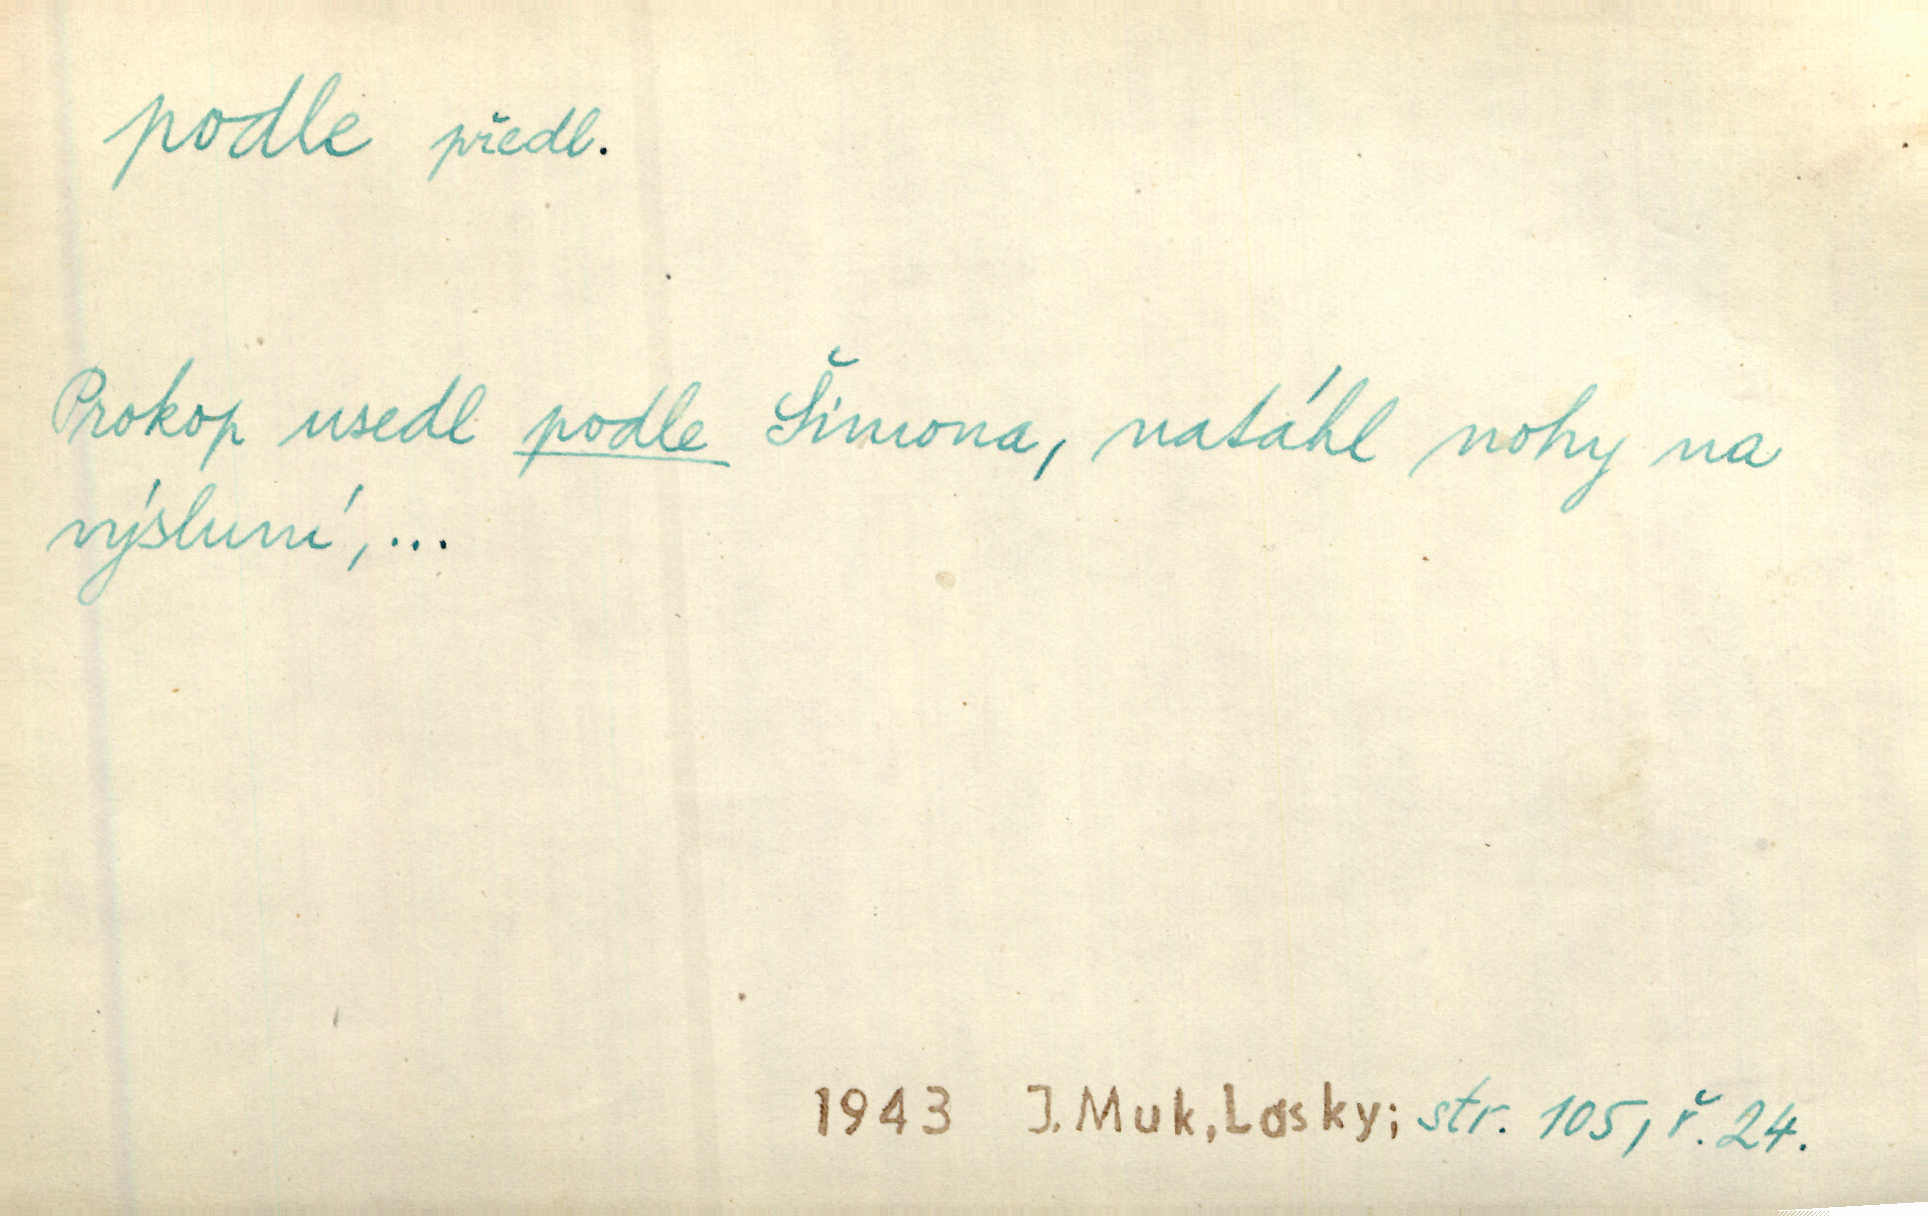 podle předl.
Prokop usedl podle Šimona, natáhl nohy na
výsluní, ...
1943 J. Muk, Lásky; str. 105, ř. 24.